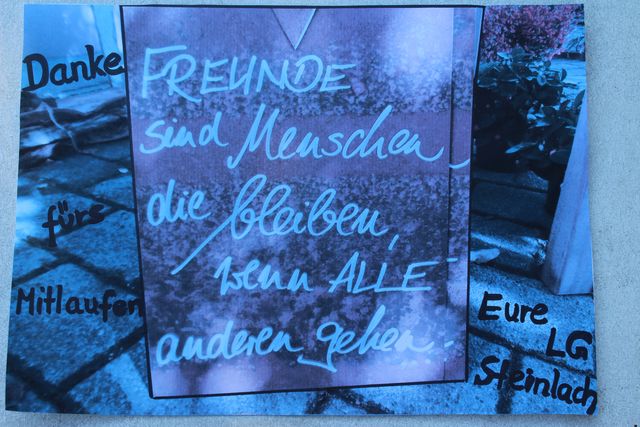 Danke
fürs
Mitlaufen
FREUNDE
sind Menschen,
die bleiben,
wenn ALLE
anderen gehen.
Eure
LG
Steinlach